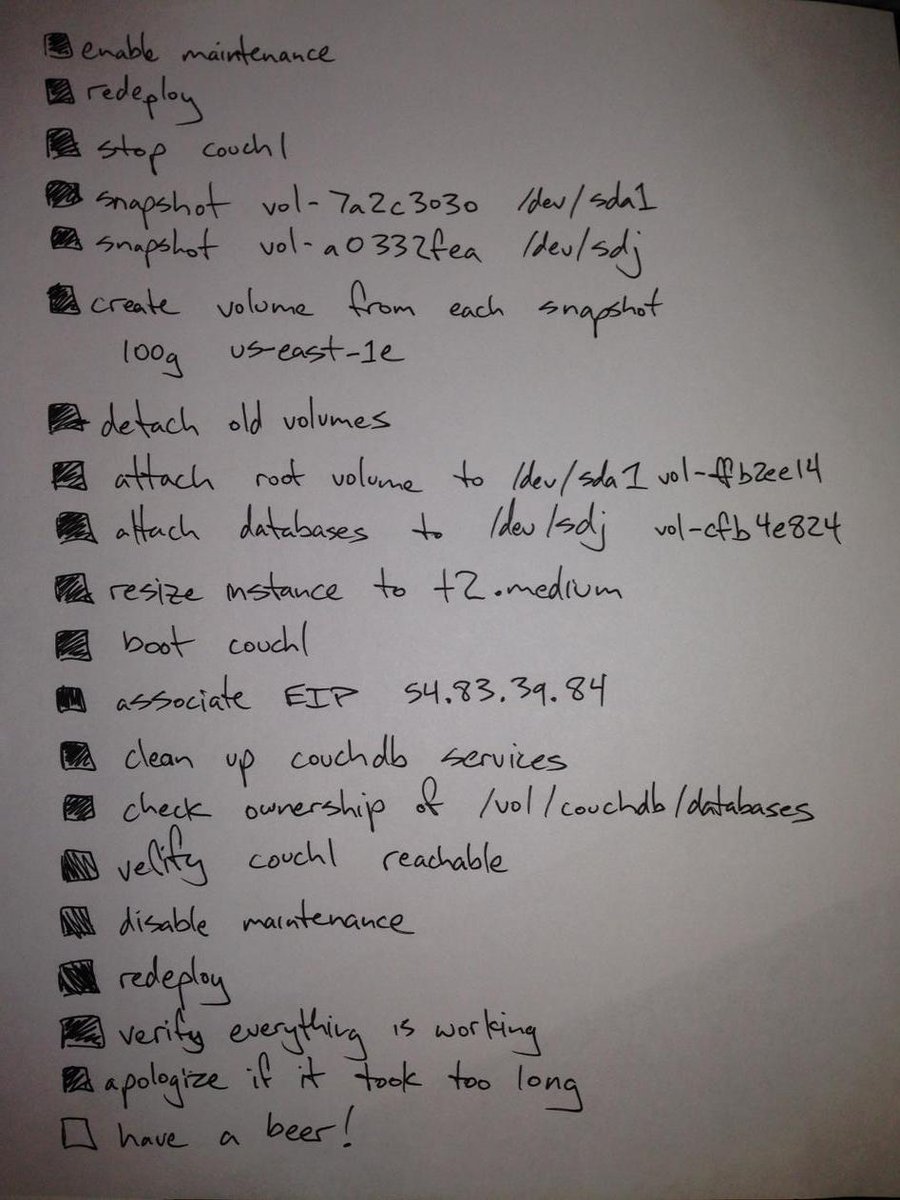 enable maintenance
redeploy
stop couch1
snapshot vol-7a2c3030 /dev/sda1
snapshot vol-a0332fea /dev/sdj
create volume from each snapshot
100g us-east-1e
detach old volumes
attach root volume to /dev/sda1 vol-ffb2ee14
attach databases to /dev/sdj vol-cfb4e824
resize instance to t2.medium
boot couch1
associate EIP 54.83.39.84
clean up couchdb services
check ownership of /vol/couchdb/databases
verify couch1 reachable
disable maintenance
redeploy
verify everything is working
apologize if it took too long
have a beer!